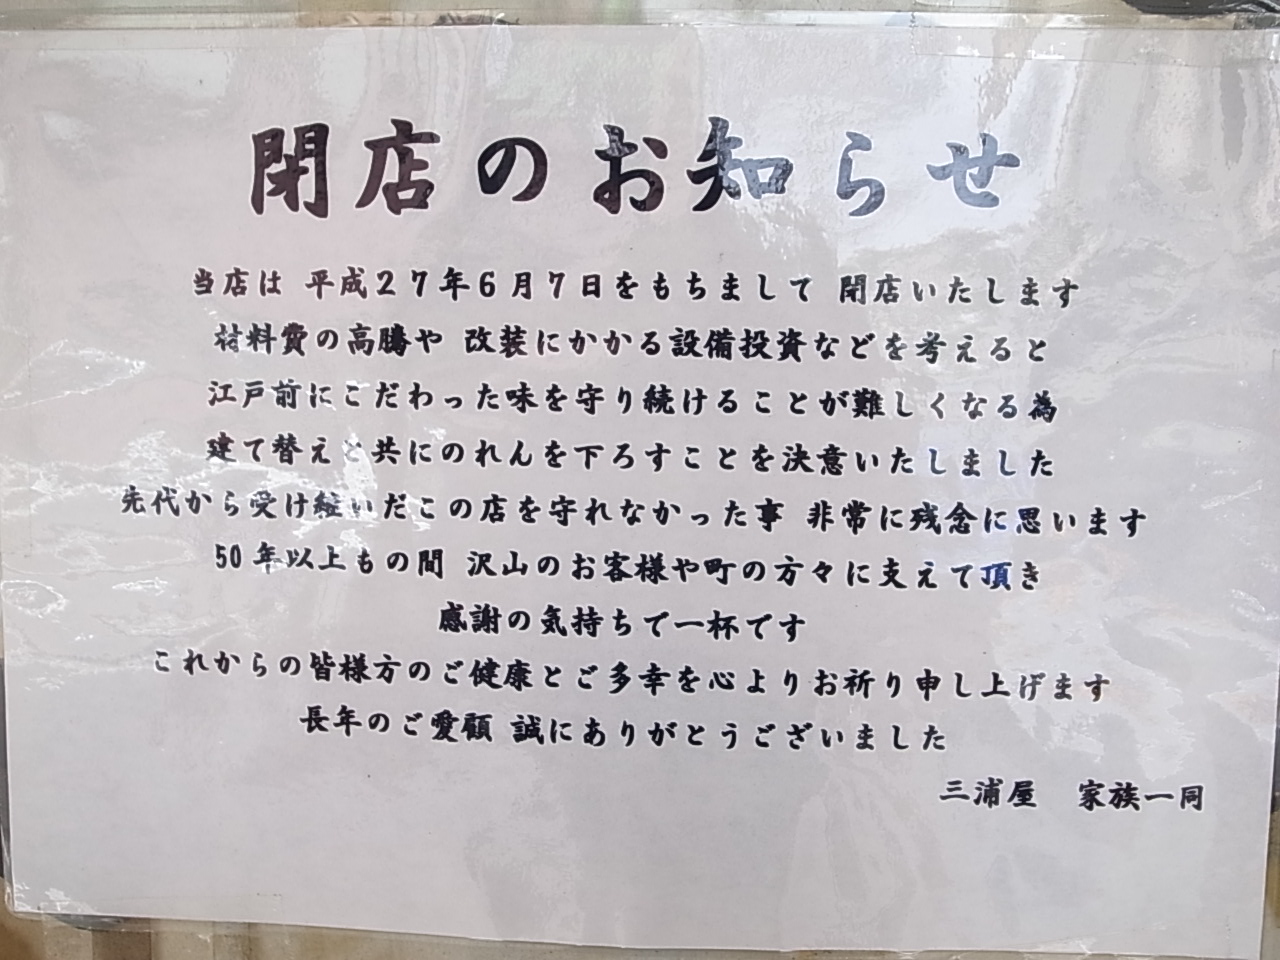 閉店のお知らせ
当店は 平成27年6月7日をもちまして 閉店いたします
材料費の高騰や 改装にかかる設備投資などを考えると
江戸前にこだわった味を守り続けることが難しくなる為
建て替えと共にのれんを下ろすことを決意いたしました
先代から受け継いだこの店を守れなかった事 非常に残念に思います
50年以上もの間 沢山のお客様や町の方々に支えて頂き
感謝の気持ちで一杯です
これからの皆様方のご健康とご多幸を心よりお祈り申し上げます
長年のご愛顧 誠にありがとうございました
三浦屋 家族一同